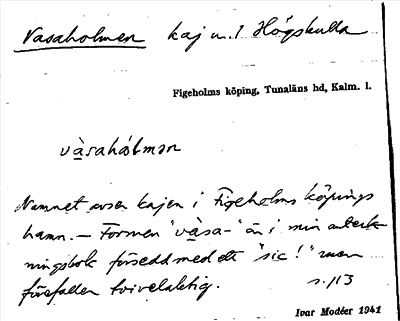 Vasaholmen kaj n.1 Högskulla
Figeholms köping, Tunaläns hd, Kalm. l.
va̱sahólmən
Namnet avser kajen i Figeholms köpings
hamn. – Formen "va̱sa-" är i min anteck-
ningsbok försedd med ett "sic!" men
förefaller tvivelaktig. s. 113
Ivar Modéer 1941